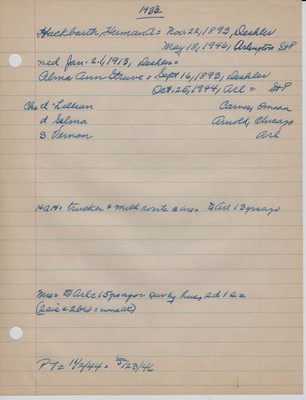 1922
Hackbarth, Herman A = Nov. 22, 1892, Deshler
May 18, 1946, Arlington StP
med Jan. 21, 1913, Deshler =
Alma Ann Struve = Sept 16, 1893, Deshler
Oct. 25, 1944, Arl = StP
Chs d Lillian Carnes, Omaha
d Selma Arnold, Chicago
s Vernon Arl
HaH = trucker & milk route = Arl 13 yrs ago
Mrs = to Arl c 15 yrs ago = surv by hus, 2d 1s =
PT = 11/2/44 = 5/23/46